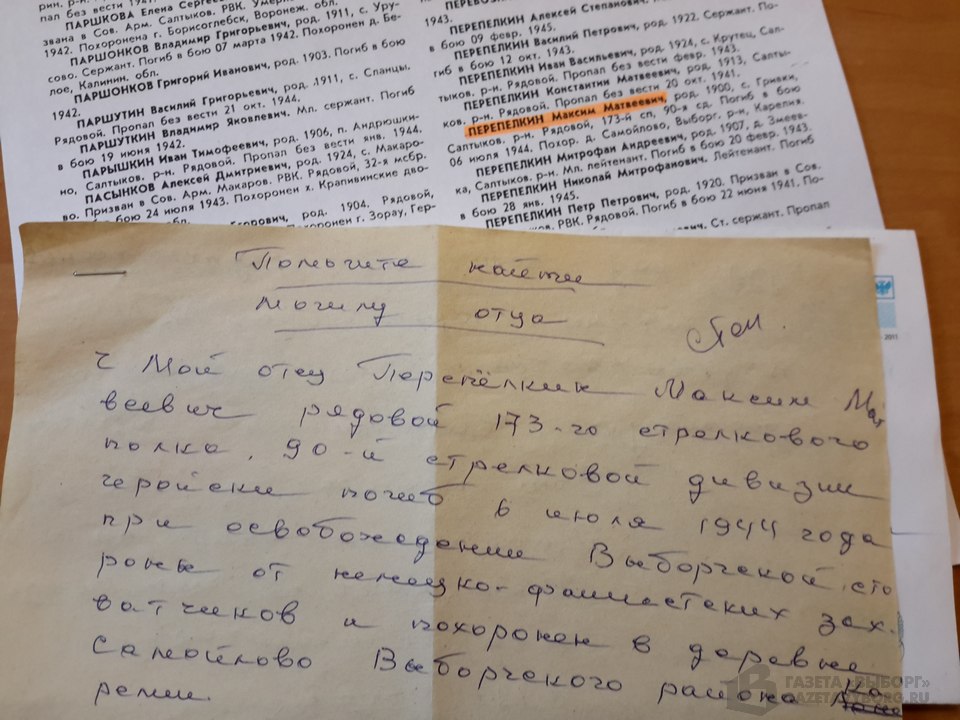 ПАРШКОВА Елена
пал без вести
звана в Сов. Арм. Салтыков. РВК.
1942. Похоронен д. Бе-
ПАРШОНКОВ Владимир Григорьевич, род. 1911, с. Уру-
сово. Сержант. Погиб в бою 07 марта 1942. Похоронен
лое, Калинин. обл.
ПАРШОНКОВ Григорий Иванович, род. 1903. Погиб в бою
1942.
ПАРШУТИН Василий Григорьевич, род. 1911, с. Сланцы,
Рядовой. Пропал без вести 21 окт. 1944.
ПАРШУТКИН Владимир Яковлевич. Мл. сержант. Погиб
в бою 19 июня 1942.
ПАРЫШКИН Иван Тимофеевич, род. 1906, п. Андрюшки-
но, Салтыков. р-н. Рядовой. Пропал без вести янв. 1944.
ПАСЫНКОВ Алексей Дмитриевич, род. 1924, с. Макаро-
во. Призван в Сов. Арм. Макаров. РВК. Рядовой, 32-я мсбр.
бою 24 июля 1943. Похоронен х. Крапивинские дво-
горович, род. 1904. Рядовой,
Похоронен г. Зорау, Гер-
1943.
ПЕРЕПЕЛКИН Алексей Степанович,
в бою 09 февр. 1945.
ПЕРЕПЕЛКИН Василий Петрович, род. 1922. Сержант. По-
гиб в бою 12 окт. 1943.
ПЕРЕПЕЛКИН Иван Васильевич, род. 1924, с. Крутец, Сал-
тыков. р-н. Рядовой. Пропал без вести февр. 1943.
ПЕРЕПЕЛКИН Константин Матвеевич, род. 1913, Салты-
ков. р-н. Рядовой. Пропал без вести 20 окт. 1941.
ПЕРЕПЕЛКИН Максим Матвеевич, род. 1900, с. Гривки,
Салтыков. р-н. Рядовой, 173-й сп, 90-я сд. Погиб в бою
06 июля 1944. Похор. д. Самойлово, Выборг. р-н, Карелия.
ПЕРЕПЕЛКИН Митрофан Андреевич, род. 1907, д. Змеев-
ка, Салтыков. р-н. Мл. лейтенант. Погиб в бою 20 февр. 1943.
ПЕРЕПЕЛКИН Николай Митрофанович. Лейтенант. Погиб
в бою 28 янв. 1945.
ПЕРЕПЕЛКИН Петр Петрович, род. 1920. Призван в Сов.
РВК. Рядовой. Погиб в бою 22 июня 1941. По-
Ст. сержант. Пропал
2011
Помогите найти
могилу отца
Мой отец Перепёлкин Максим Мат
веевич рядовой 173-го стрелкового
полка, 90-й стрелковой дивизии
геройски погиб 6 июля 1944 года
при освобождении Выборгской сто
роны от немецко-фашистских зах-
ватчиков и похоронен в деревне
Самойлово Выборгского района Ка
релии.
ГАЗЕТА «ВЫБОРГ»
GAZETAVYBORG.RU